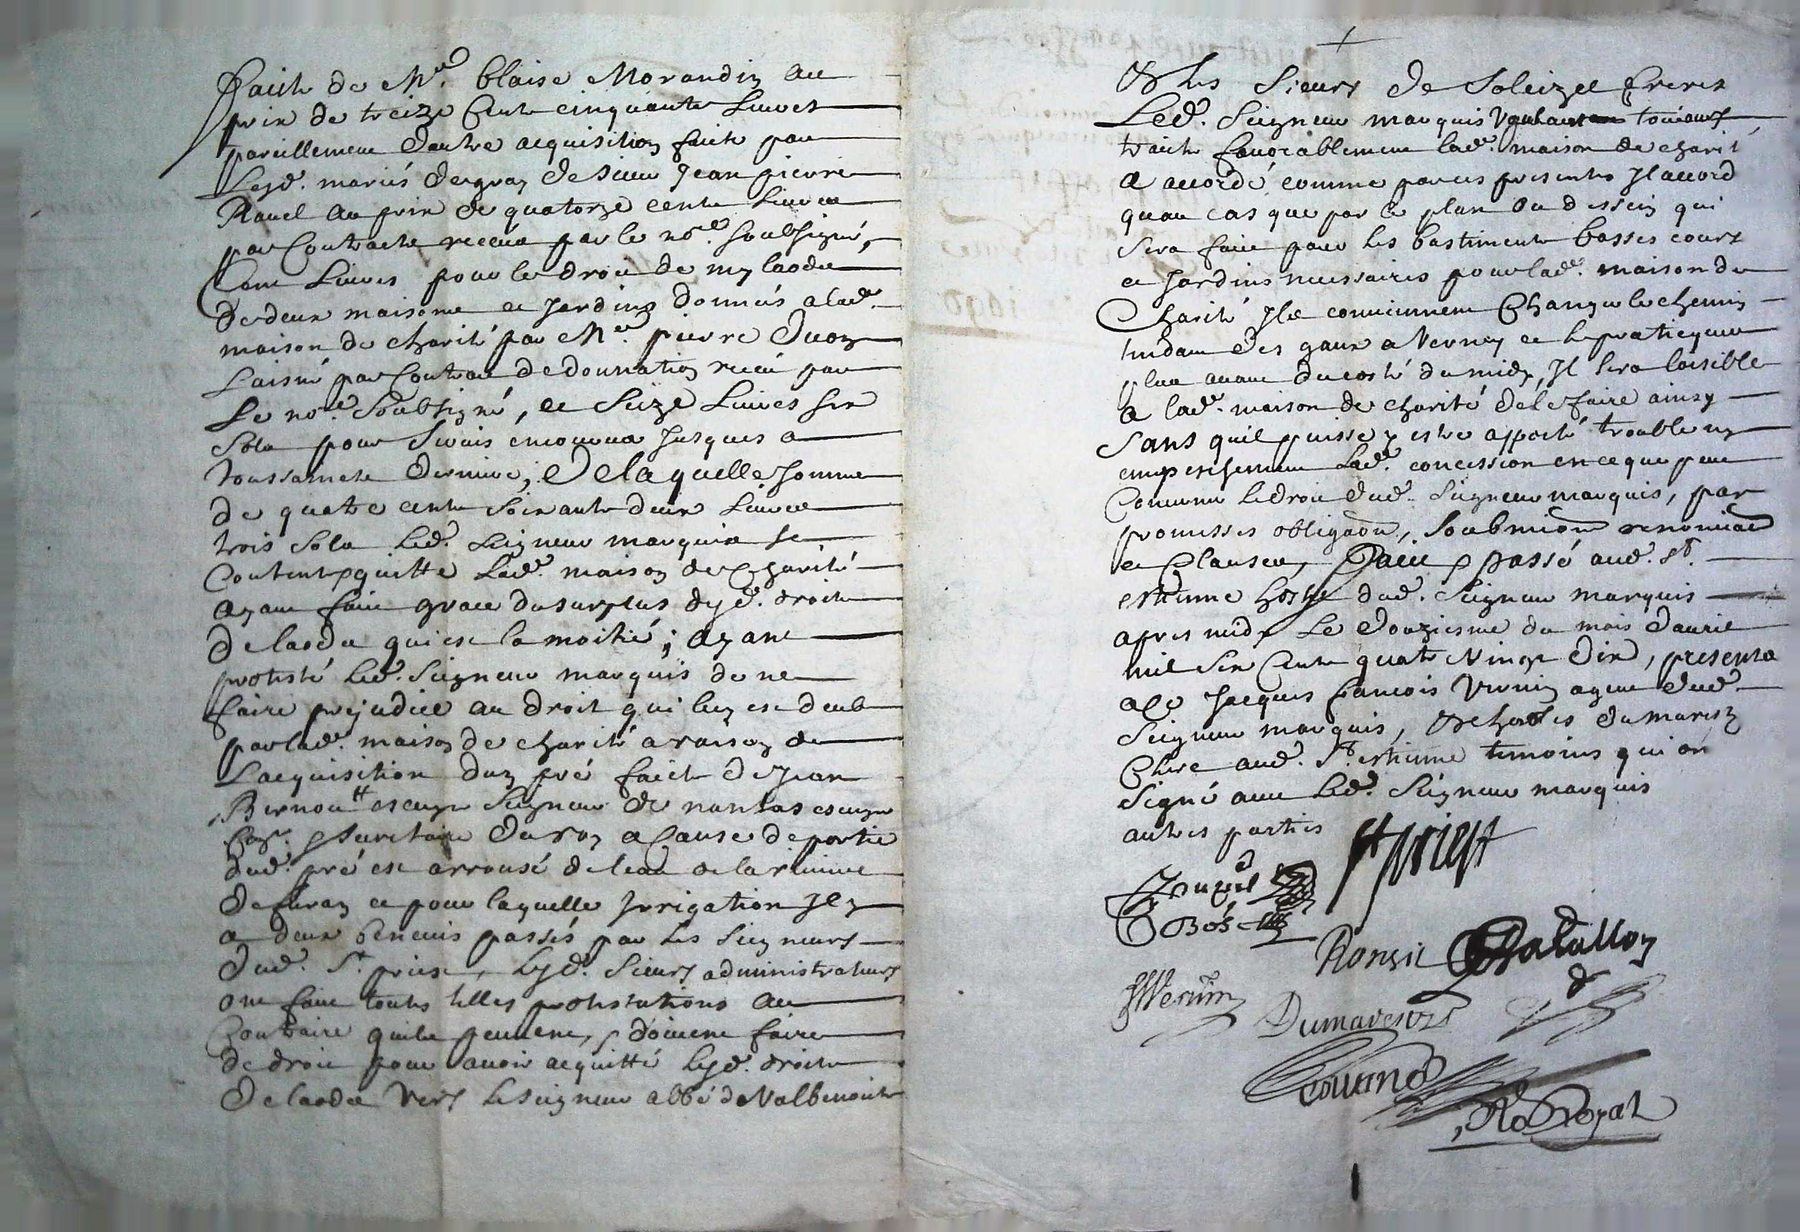 faicte de Mre. blaise Morandin au
prix de treize Cents cinquante Livres
pareillement d'autre acquisition faicte par
Lesd. mariés de Sieur Jean pierre
Ravel au prix de quatorze cents Livres
par Contracts receus par le nore. soubsigné,
Cent Livres pour le droit de my laods
de deux maisons et Jardins donnés a lad.
maison de charité par Mre. pierre Duon
Laisné par Contract de donnation receu par
Le nore. Soubsigné, et Seize Livres six
Sols pour Servis encourus Jusques a
toussaincts derniers; De laquelle somme
de quatre cents Soixante deux Livres
trois sols Led. Seigneur marquis se
Contente quitte Lad. maison de Charité
ayant faict grace du surplus desd. droits
de laods qui est la moitié; ayant
protesté Led. Seigneur marquis de ne
faire prejudice au droit qui luy est deub
par lad. maison de charité a raison de
L'acquisition d'un pré faicte de Jean
Bernou escuyer Seigneur de nantas escuyer
secretaire du roy a Cause de partie
dud. pré est arrousé de l'eau de la riviere
de furan et pour laquelle Irrigation Il y
a deux benevis passés par les Seigneurs
dud. St. priest, Lesd. Sieurs administrateurs
ont faict toutes telles protestations au
Contraire quils peuvent, et doivent faire
de droit pour avoir acquitté Lesd. droits
de laods vers Le Seigneur abbé de Valbenoite
& les Sieurs de Soleizel freres
Led. Seigneur marquis Voulant toujours
traicter favorablement lad. maison de charité
a accordé comme par ces presentes Il accorde
quau cas que par le plan ou dessein qui
sera faict pour les bastiments basses cours
et Jardins necessaires pour lad. maison de
Charité Ils conviennent Changer le chemin
tendant des gaux a Verney et le practiquer
plus avant du costé du midy, Il sera loisible
a lad. maison de charité de le faire ainsy
sans quil puisse y estre apporté trouble ny
empeschement Lad. concession en ce que peut
Concerner Le droit dud. Seigneur marquis, par
promesses obligaōn, soubmiōn renonciaōn
et Clauses, Faict et passé aud. St.
estienne hostel dud. Seigneur marquis
apres midy Le douziesme du mois d'avril
mil six Cents quatre Vingt dix, presents
a ce Jacques francois Vernin agent dud.
Seigneur marquis, & Charles Dumarest
Clerc aud. St. estienne temoins qui ont
signé avec Led. Seigneur marquis
autres parties
St priest
Bost
Ronzil Chatallon
Vernin
Dumarest